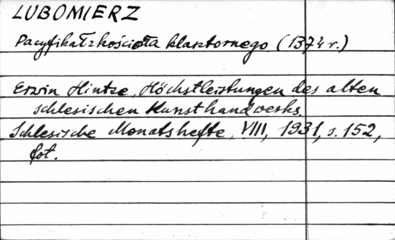 LUBOMIERZ
Pacyfikał z kościoła klasztornego (1374 r.)
Erwin Hintze, Höchstleistungen des alten
schlesischen Kunsthandwerks.
Schlesische Monatshefte, VIII, 1931, s. 152,
fot.